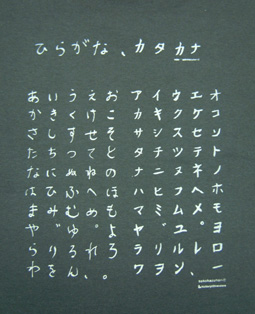 ひらがな、カタカナ
あいうえお アイウエオ
かきくけこ カキクケコ
さしすせそ サシスセソ
たちつてと タチツテト
なにぬねの ナニヌネノ
はひふへほ ハヒフヘホ
まみむめも マミムメモ
や゛ゆ。よ ヤ゛ユ。ヨ
らりるれろ ラリルレロ
わをん、。 ワヲン、ー